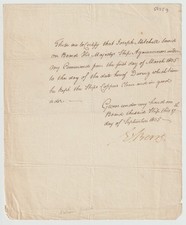 These are to certify that Joseph Mitchell served on
Board His Majestys Ship Agamemnon under
my Command from the first day of March 1805
to the day of the date hereof During which time
he kept the Ships Copper Clean and in good
order
Given under my hand on
Board the said Ship this
day of September 1805